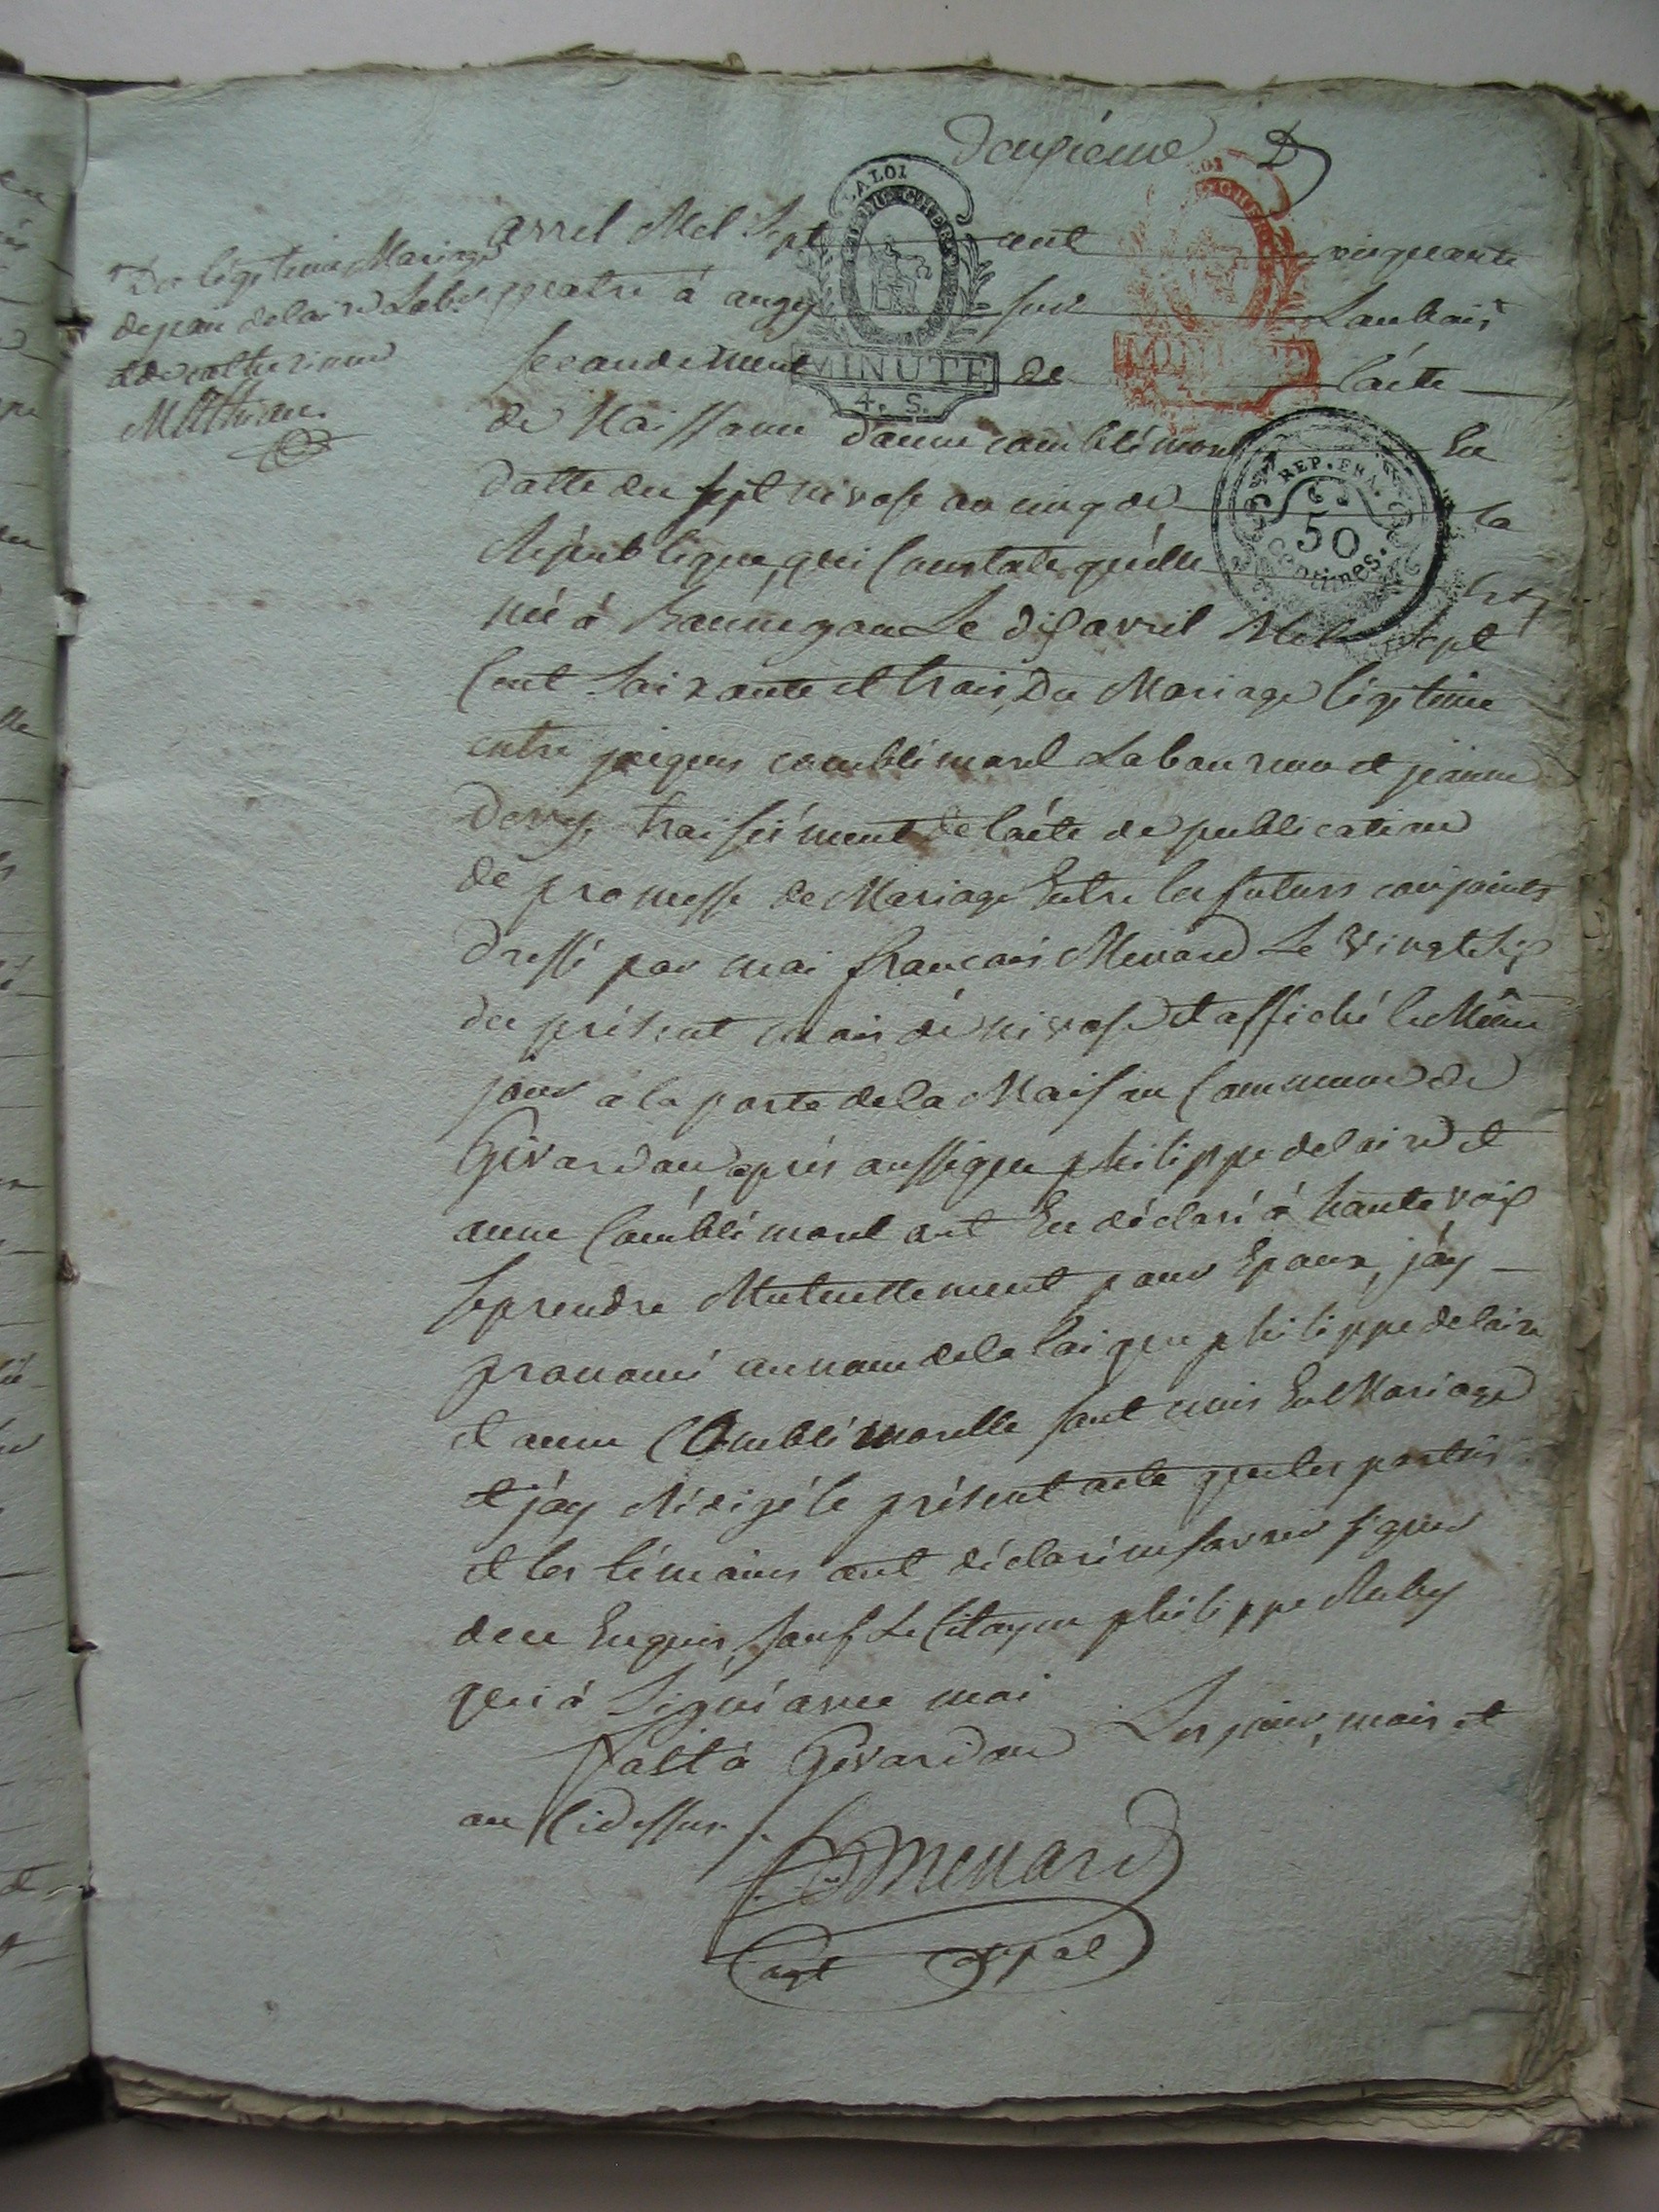 deuxième
avril Mil Sept cent cinquante
quatre à augy sur Laubois
+ Du légitime Mariage
de jean delaire Lab.r
& de catherine
Mathieu.
secondement de l'acte
de Naissance d'anne comblémorel En
datte du sept nivose an cinq de la
République, qui Constate qu'elle est
née à Bannegon Le dix avril Mil Sept
Cent Soixante et trois, Du Mariage légitime
entre jacques comblémorel Laboureur et jeanne
troisiément de l'acte de publication
de promesse de Mariage Entre les futurs conjoints
dressé par moi françois Menard Le Vingt Six
du présent mois de nivose et affiché le Même
jour a la porte de la Maison Commune de
Givardon, après aussi que philippe delaire et
anne Comblémorel ont Eu déclaré à haute voix
se prendre Mutuellement pour Epoux, j'ay
prononcé au nom de la loi que philippe delaire
et anne Comblémorelle sont unis En Mariage
et j'ay Rédigé le présent acte que les parties
et les témoins ont déclaré ne savoir signer
de ce Enquis, sauf Le Citoyen philippe Auby
qui a Signé avec moi
fait à Givardon Les jour, mois et
an Cidessus.
Menard
agt
LA LOI
MINUTE
4. S.
REP. FRA.
50
Centimes.